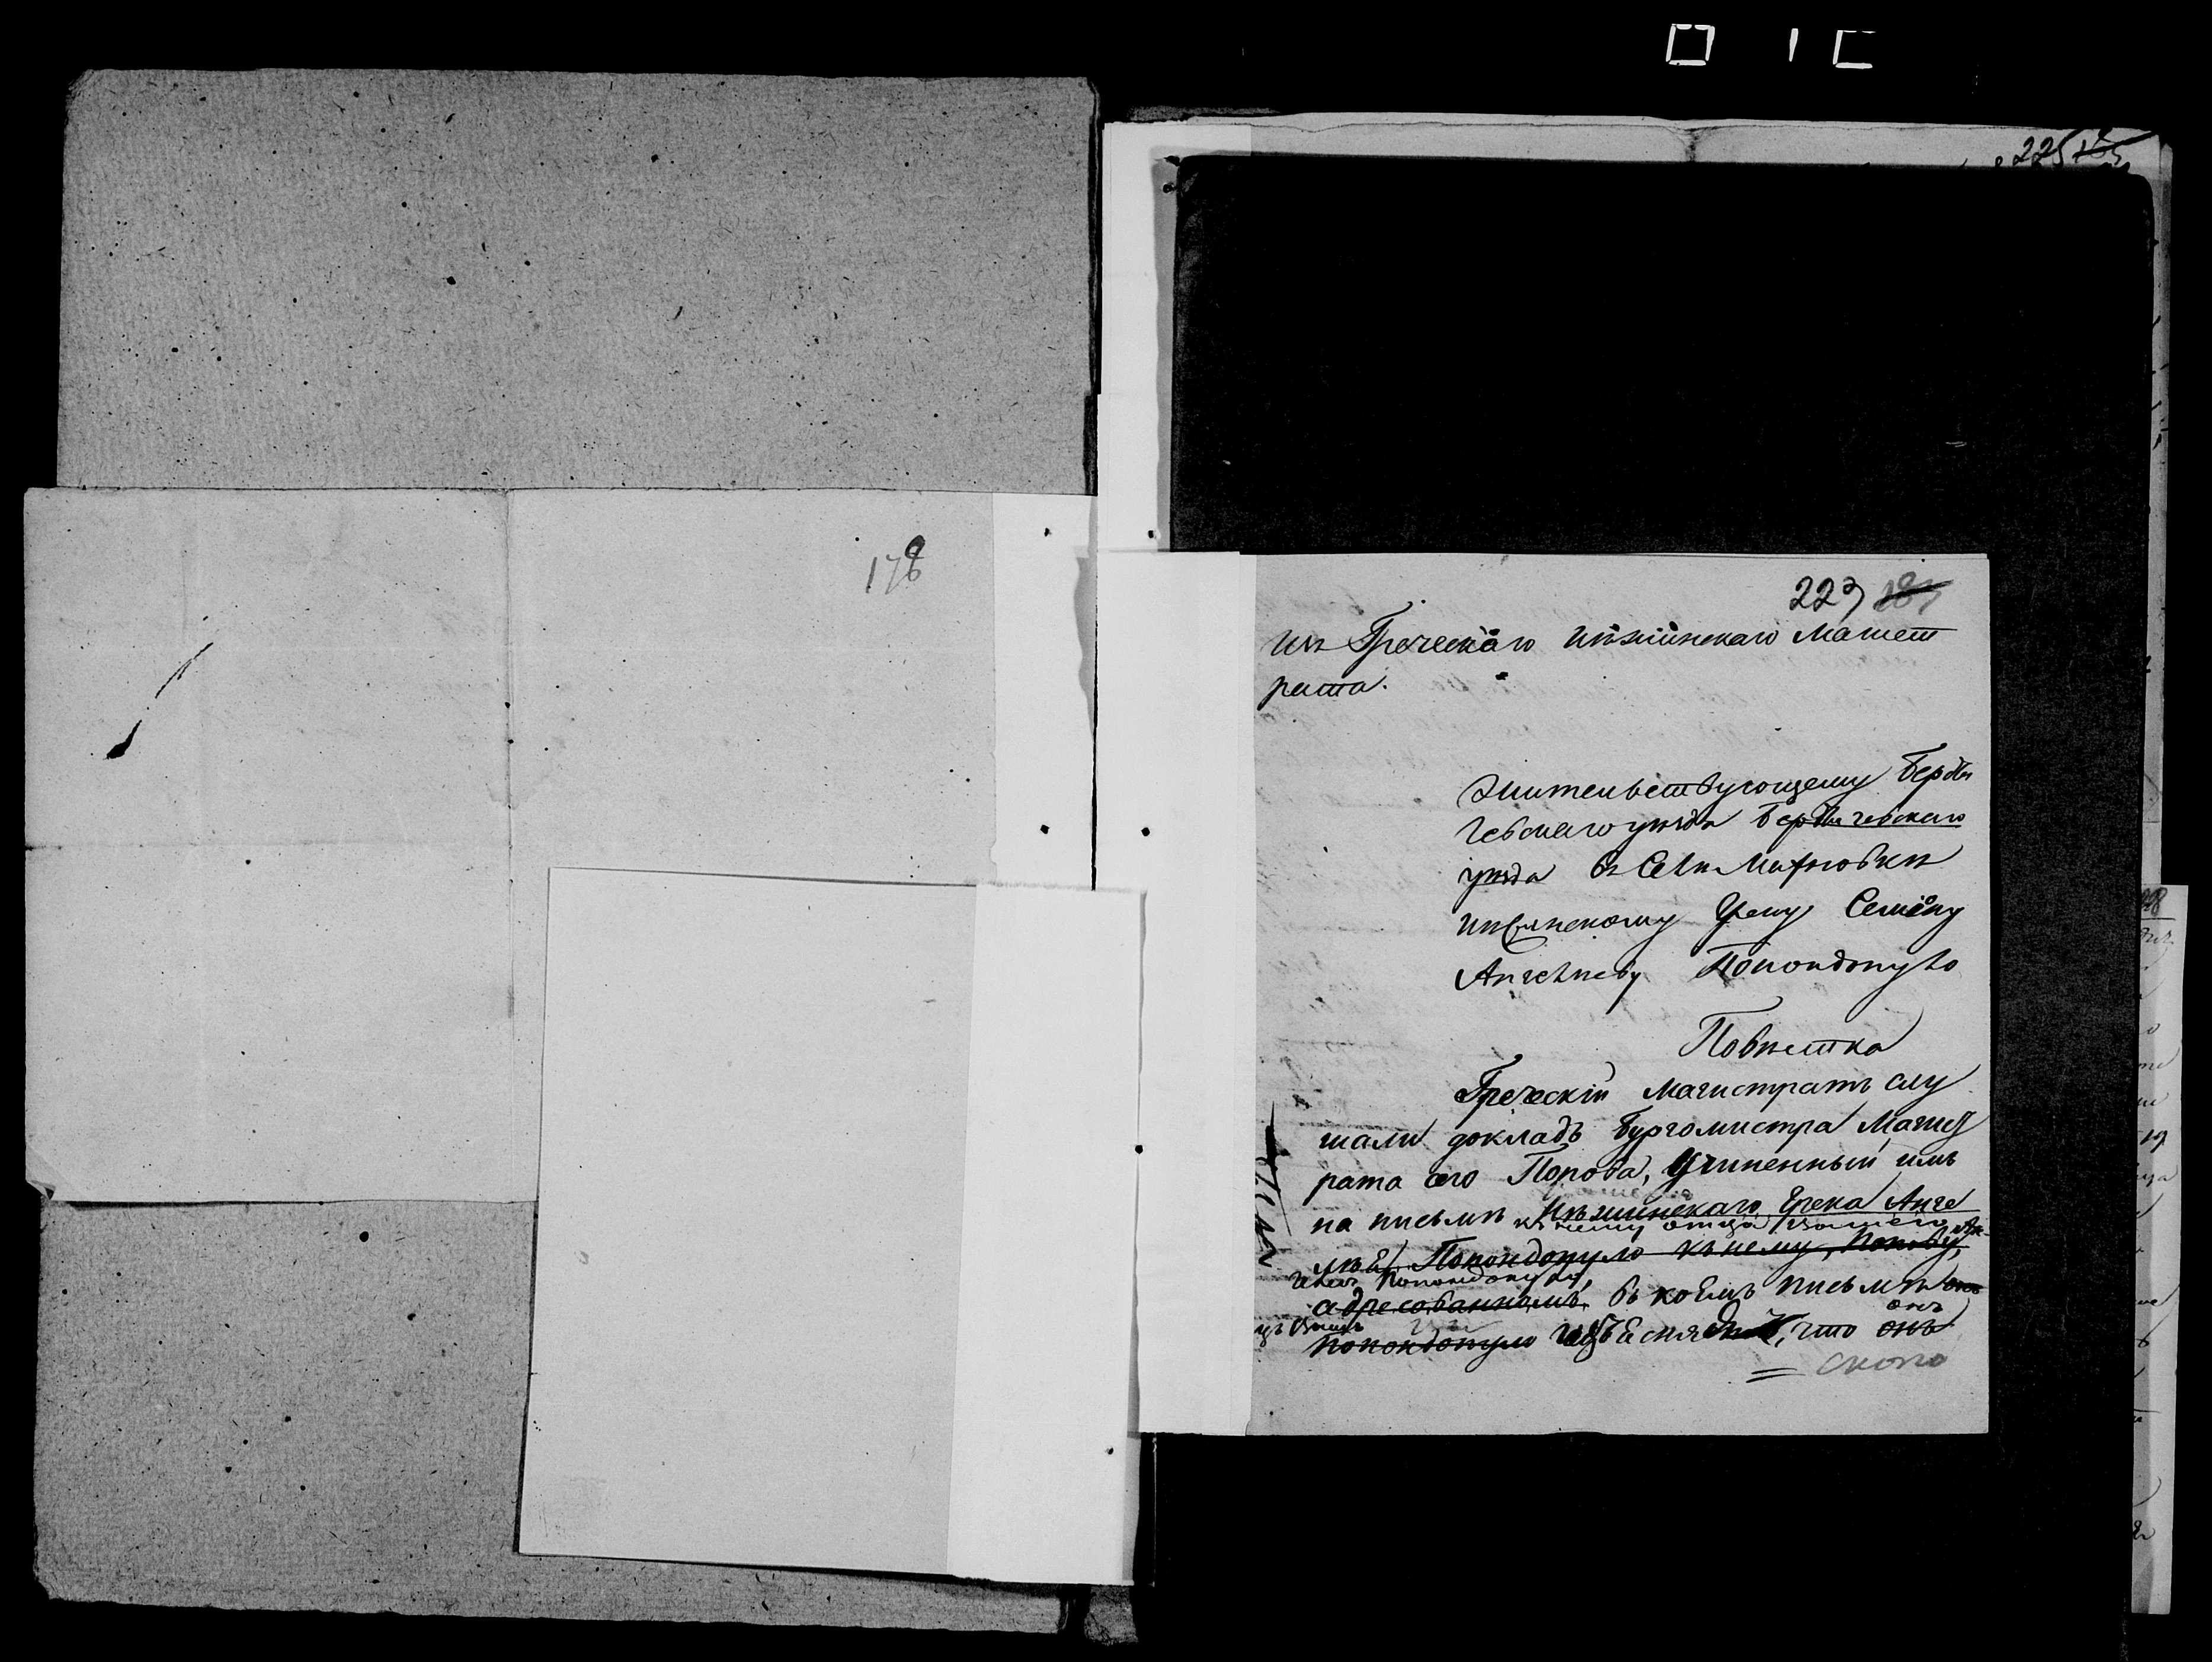 178
225
223 187
Изъ Греческаго Нѣжинскаго Магист
рата.
Жительствующему Берди
чевскаго уѣзда Бердичевскаго
уѣзда въ Селѣ Махновкѣ
нѣжинскому Греку Семену
Ангелѣеву Попондопуло
Повѣстка
Греческій Магистратъ слу
шали докладъ Бургомистра Магист
рата сего Попова, Учиненный имъ
на письмѣ Нѣжинскаго Грека Анге
къ нему отца вашего Ан
лѣя Попондопуло къ нему, Попову,
гелѣя Попондопулы,
адресованномъ, въ коемъ письмѣ онъ
Попондопуло изъясняя, что онъ
онъ
= скоро